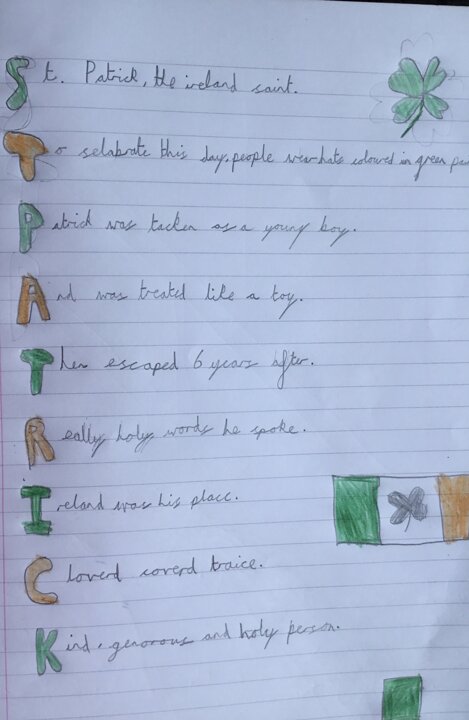 St. Patrick, the ireland saint.
To selabrate this day, people wear hats coloured in green
Patrick was tacken as a young boy.
And was treated like a toy.
Then escaped 6 years after.
Really holy words he spoke.
Ireland was his place.
Cloverd coverd traice.
Kind, generous and holy person.